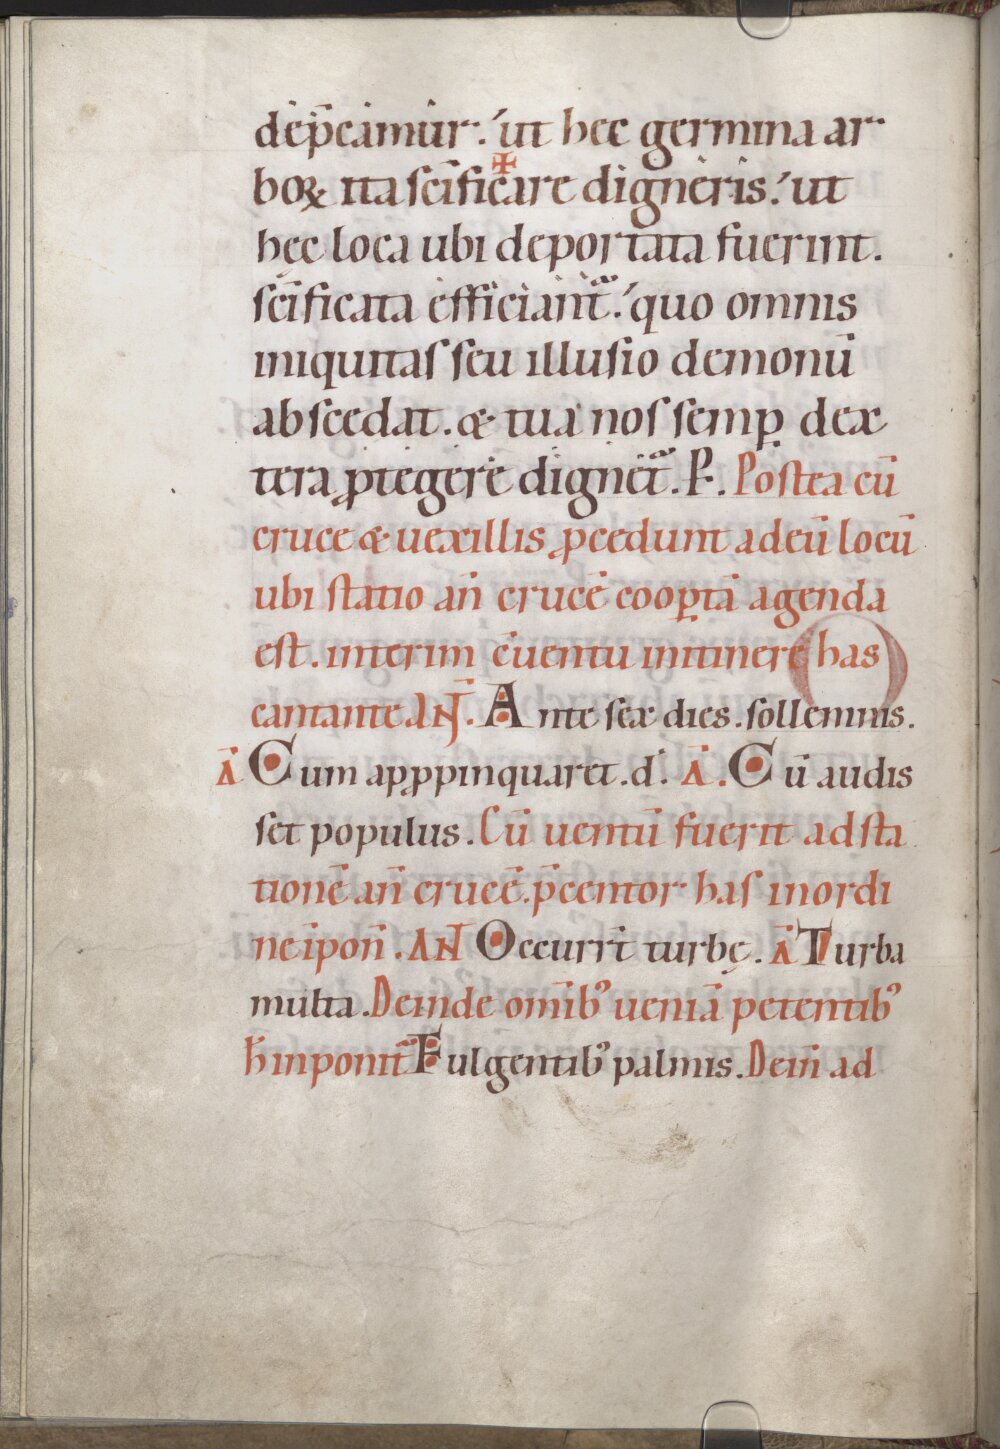 dep̄camur. ut hec germina ar
boꝝ ita sc̄ificare digneris. ut
hęc loca ubi deportata fuerint.
sc̄ificata efficiant̄. quo omnis
iniquitas seu illusio demonū
abscedat. & tua nos semꝑ dex
tera ꝓtegere dignet̄. P. Postea cū
cruce & uexillis ꝓcedunt ad eū locū
ubi statio an̄ crucē cooꝑtā agenda
est. interim c̄uentu initinere has
cantante. AN̄. Ante sex dies. sollemnis.
Ā Cum apꝓpinquaret. d. Ā. Cū audis
set populus. Cū uentū fuerit ad sta
tionē an̄ crucē. p̄centor has inordi
ne ipon̄. AN̄ Occurrt̄ turbę. Ā Turba
multa. Deinde omībꝰ ueniā petentibꝰ
h̄ inponit̄ Fulgentibꝰ palmis. Dein̄ ad